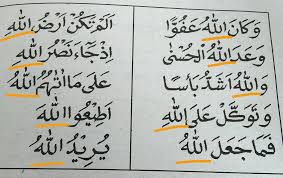 وَ كَانَ اللّٰهُ عَفُوًّا
اَلَمْ تَكُنْ اَرْضُ اللّٰهِ
وَعَدَ اللّٰهُ الْحُسْنٰى
اِذَا جَآءَ نَصْرُ اللّٰهِ
وَ اللّٰهُ اَشَدُّ بَاْسًا
عَلٰى مَا اٰتٰهُمُ اللّٰهُ
وَ تَوَكَّلْ عَلَى اللّٰهِ
اَطِيْعُوا اللّٰهَ
فَمَا جَعَلَ اللّٰهُ
يُرِيْدُ اللّٰهُ